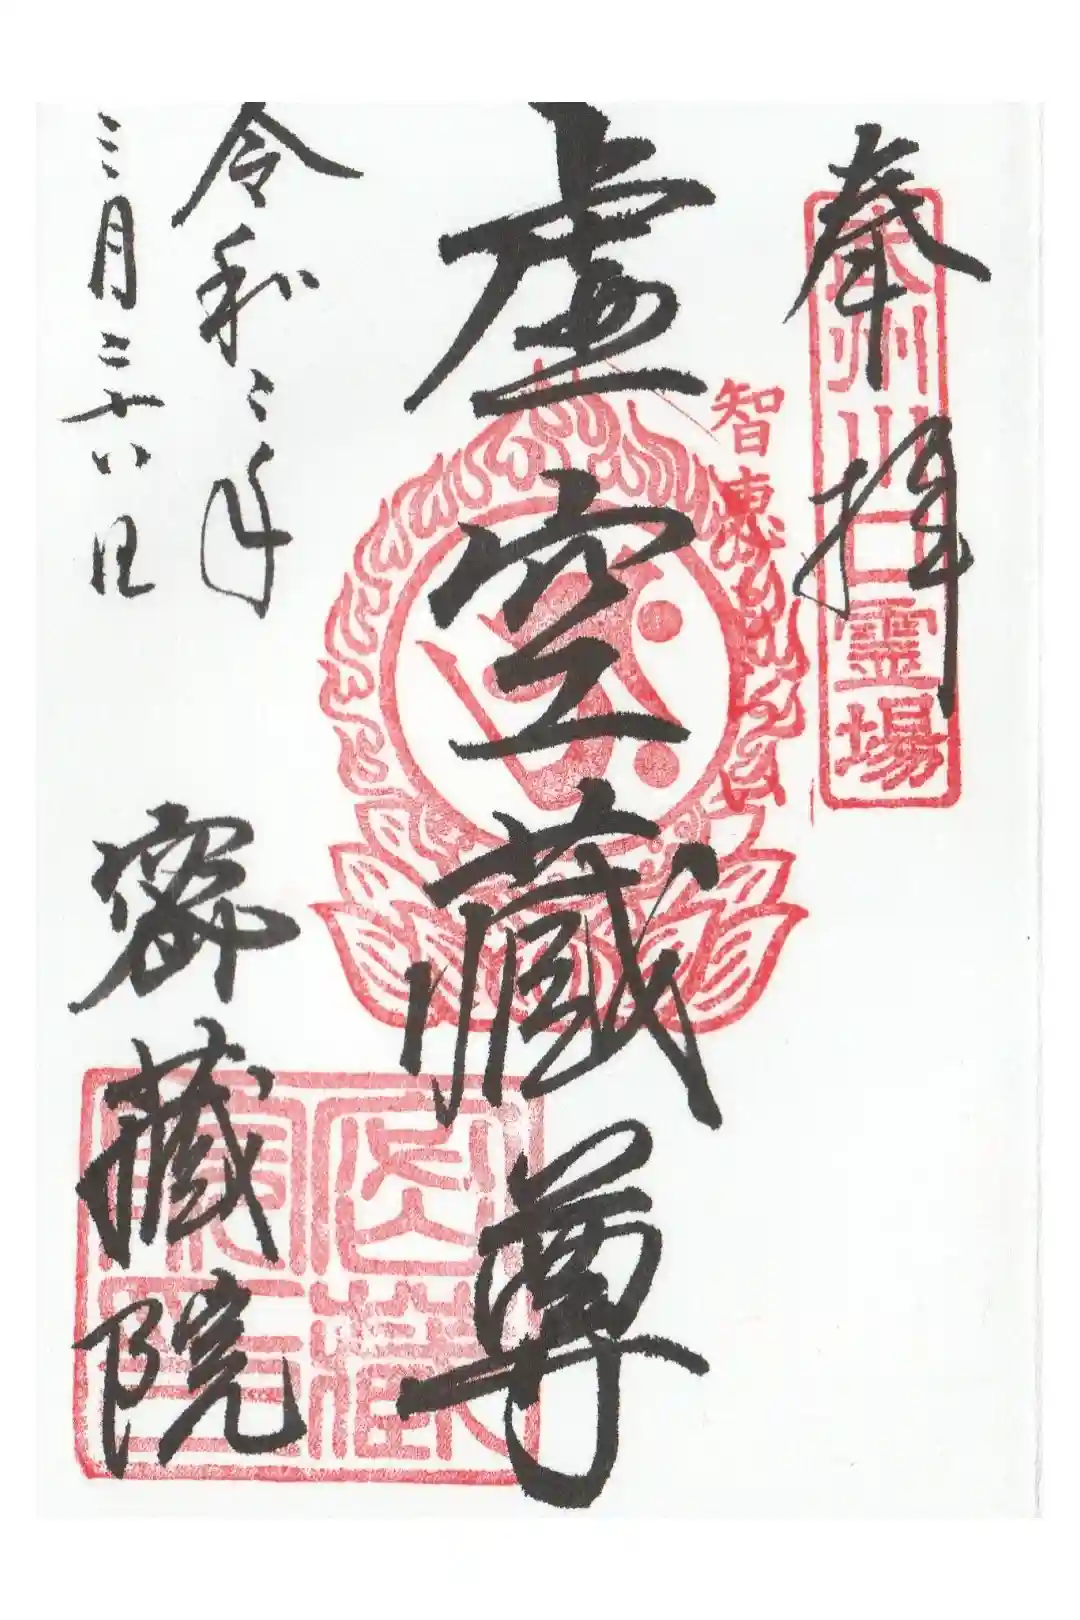 奉拝
武州川口霊場
智恵
虚空蔵尊
令和二年
三月二十八日
密蔵院